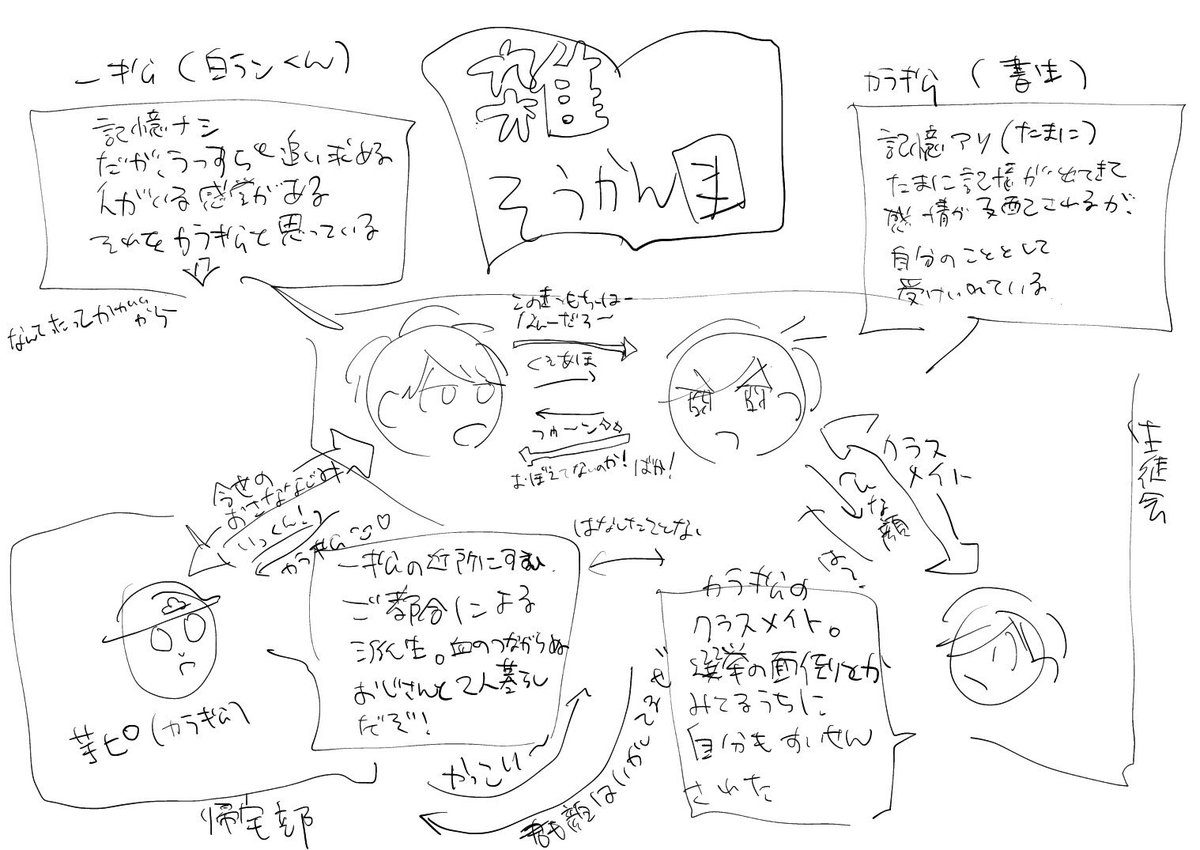 雑
そうかん図
一ギム(自ランくん)
記憶ナシ
だが、うっすらと追い求める
人がいる感覚がある
それをカラギムと思っている
なんてたってかわいい
から
カラギム(書生)
記憶アリ(たまに)
たまに記憶が出てきて
感情が支配されるが、
自分のこととして
受けいれている
このきーもちーはー
なんーだろ〜
くそあほ
つかーン
おぼえてないのか!ばか!
今世の
おさななじみ
いっくん!
カラギム♡
クラス
メイト
へんな顔
は?
生徒会
はなしたことない
一ギムの近所にすむ、
ご都合による
派生。血のつながらぬ
おじさんと2人暮らし
だぞ!
芋ピ(カラギム)
帰宅部
カラギムの
クラスメイト。
選挙の面倒とか
みてるうちに
自分もすいせん
された
かっこい〜
顔はいかしてるぜ